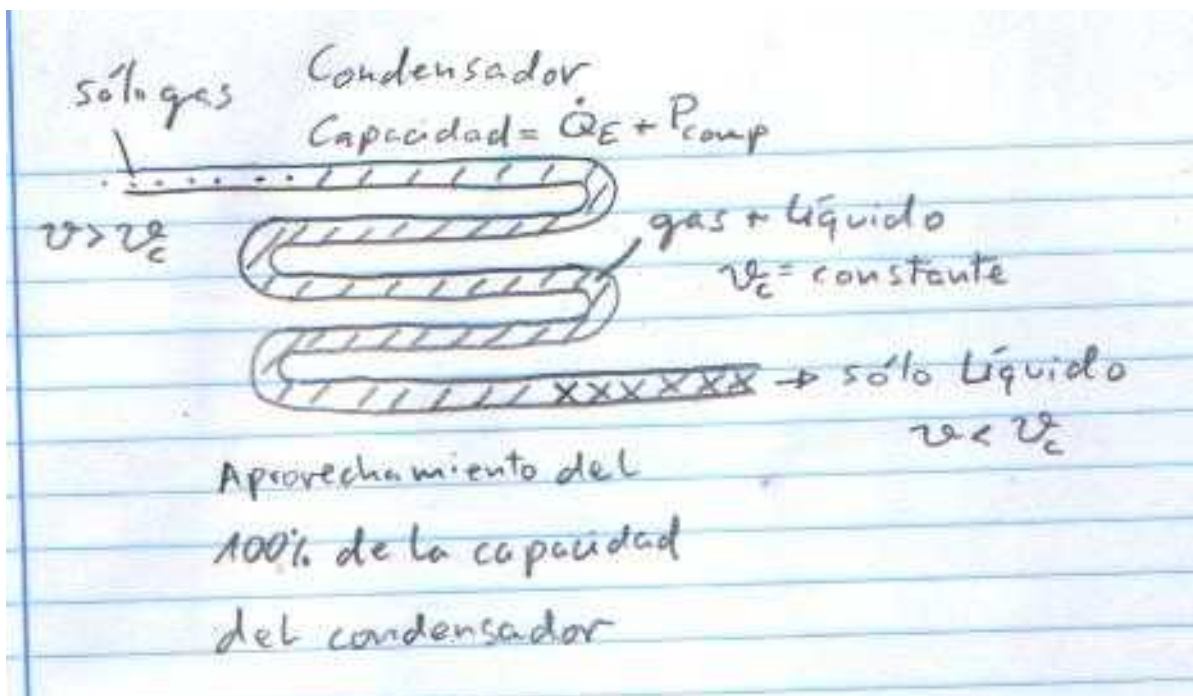 Condensador
sólo gas
Capacidad = Q̇E + Pcomp
ϑ > ϑc
gas + Líquido
ϑc = constante
→ sólo Líquido
ϑ < ϑc
Aprovechamiento del
100% de la capacidad
del condensador